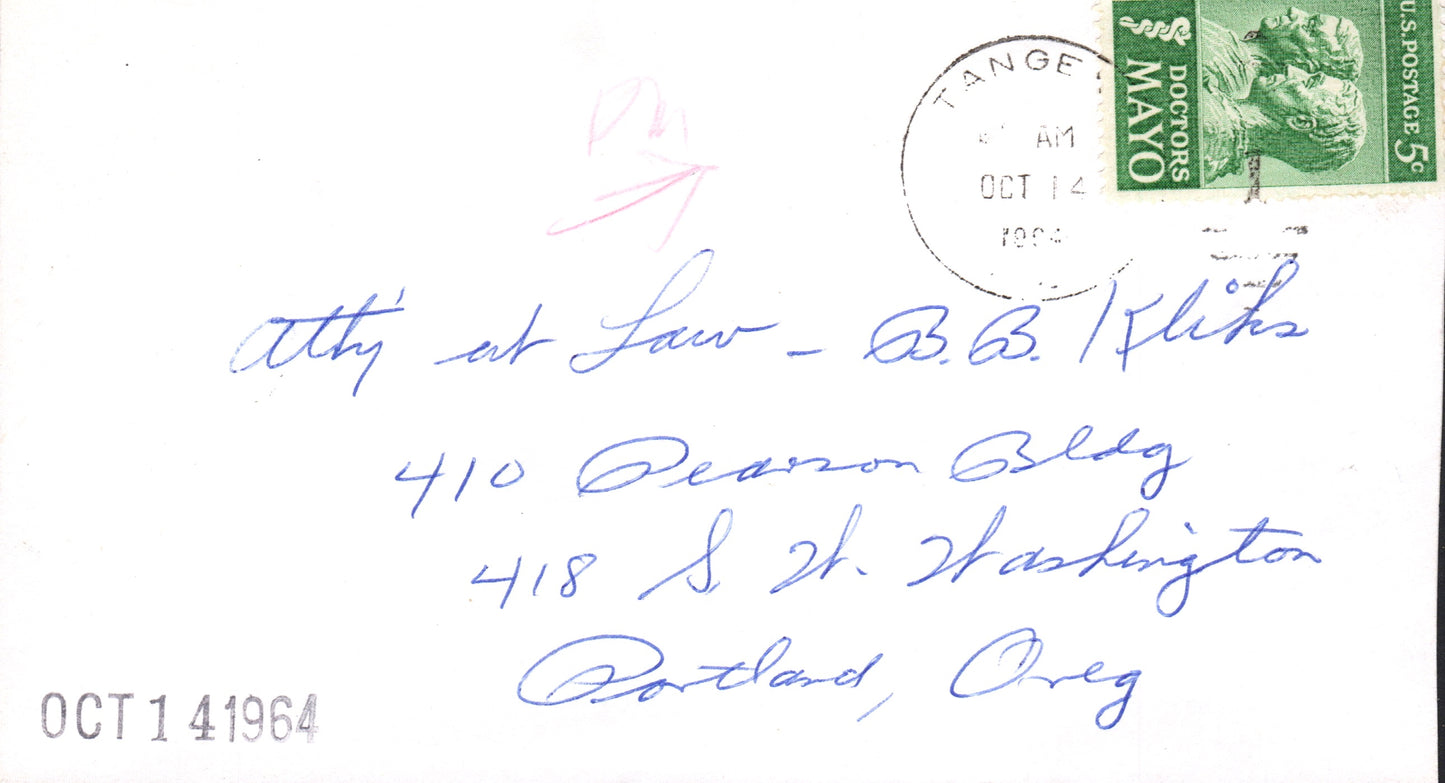 U.S. POSTAGE 5c
DOCTORS
MAYO
TANGE
AM
OCT 14
1964
Atty' at Law - B. B. Kliks
410 Pearson Bldg
418 S. W. Washington
Portland, Oreg
OCT 14 1964